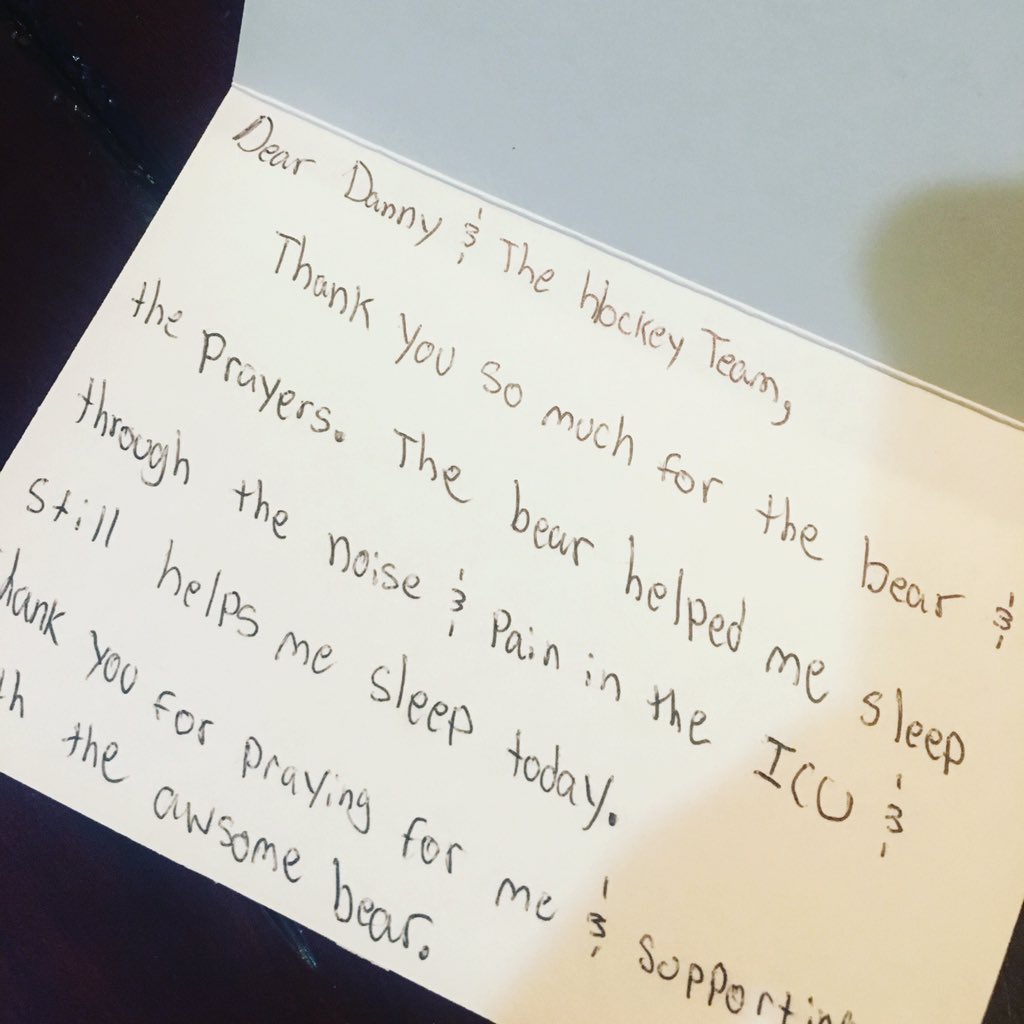 Dear Danny & The hockey Team,
Thank you so much for the bear &
the prayers. The bear helped me sleep
through the noise & pain in the ICU &
still helps me sleep today.
Thank you for praying for me & supportin
the awsome bear.